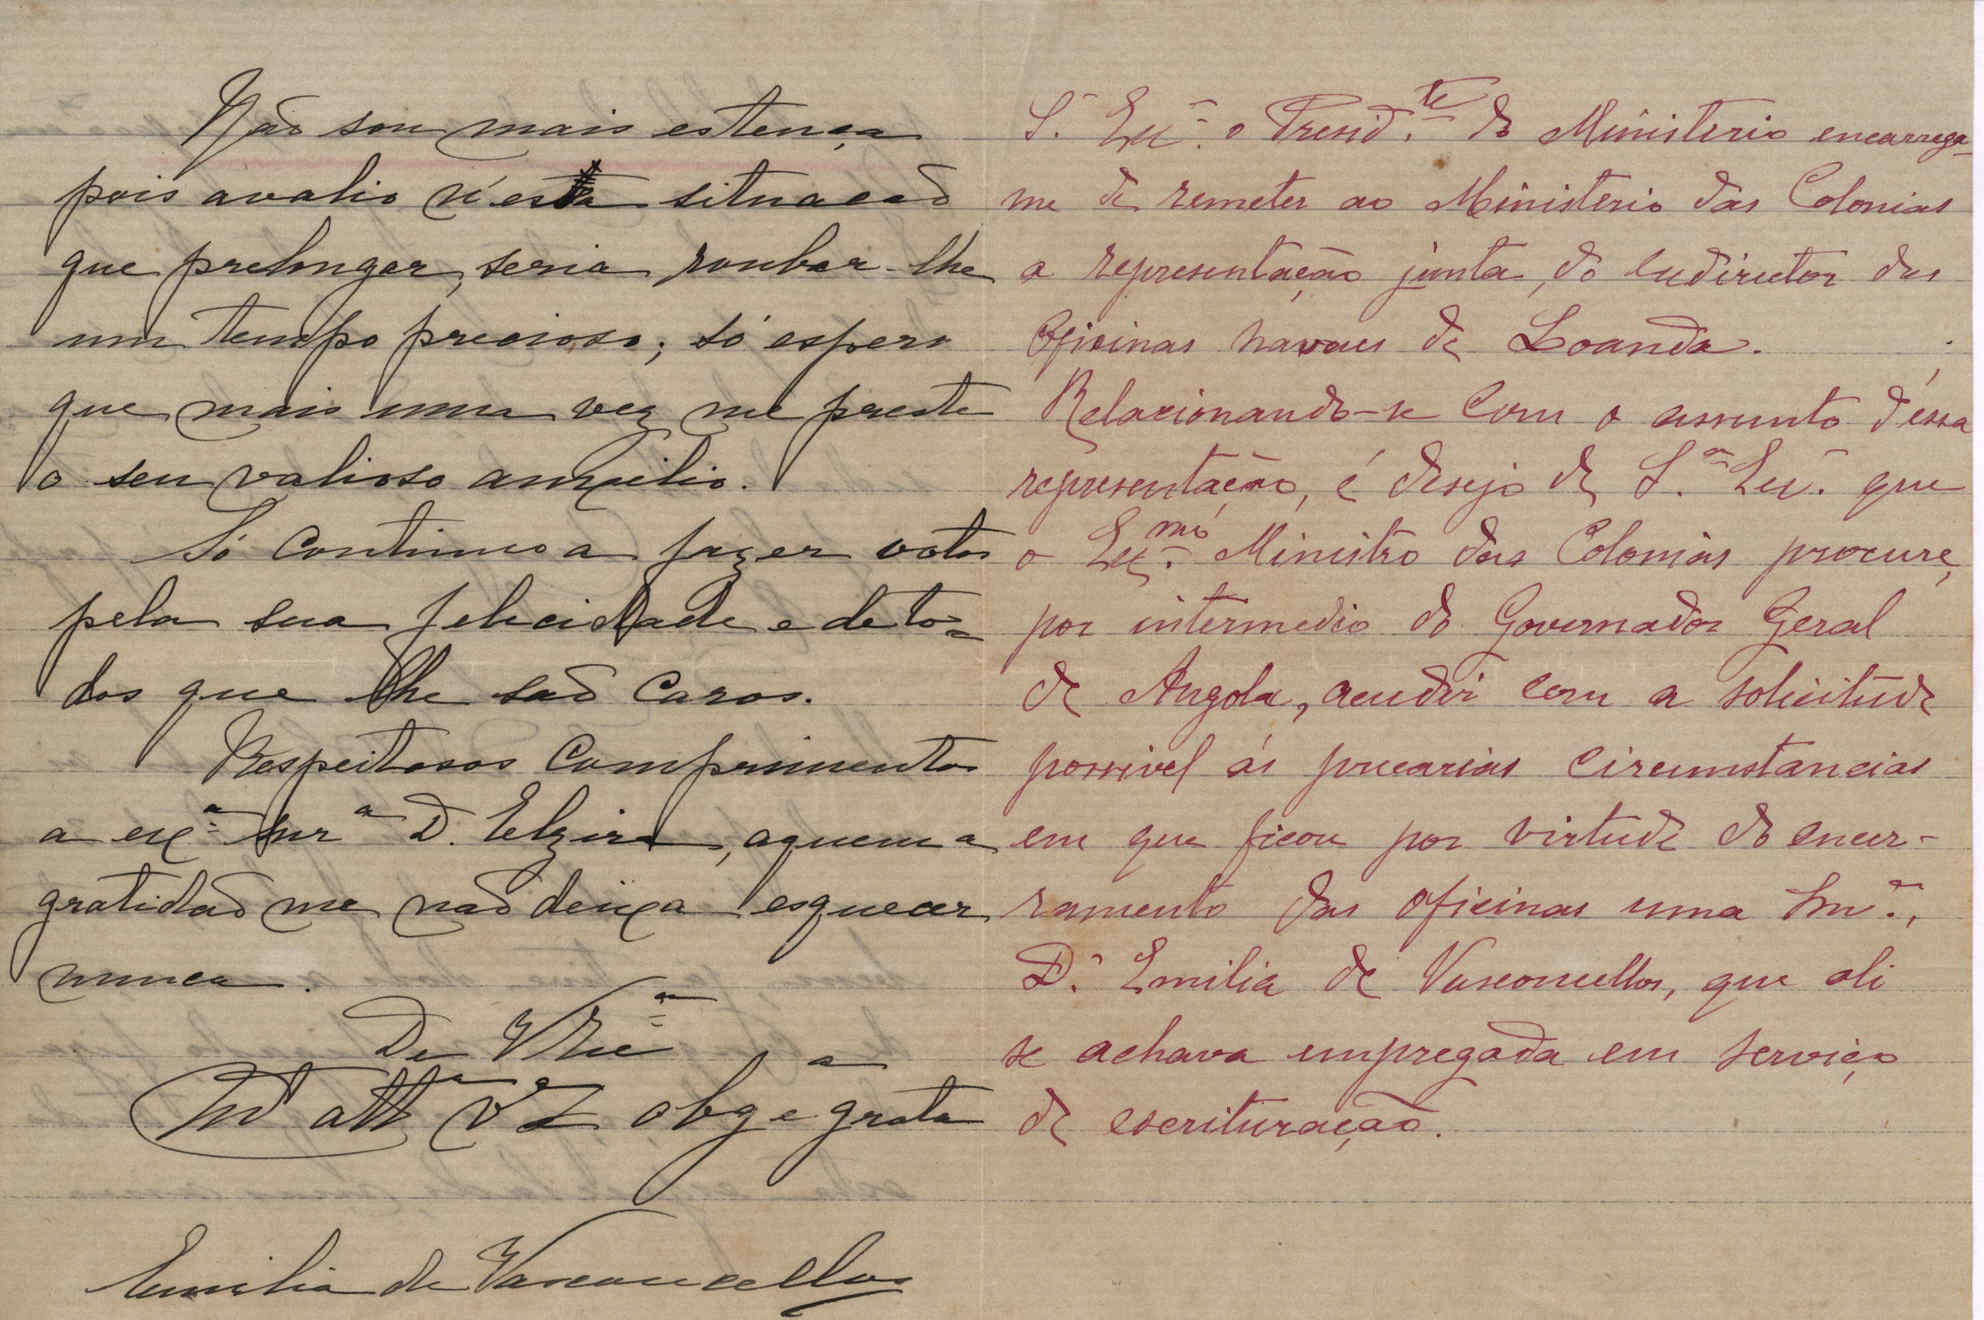 Não sou mais estença
pois avalio n'esta situacão
que prelonger, seria roubar-lhe
um tempo precioso; só espero
que mais uma vez me preste
o seu valioso auxilio.
Só continuo a fazer votos
pela sua felicidade e de to=
dos que lhe são caros.
Respeitosos Comprimentos
a exª snrª D. Elzira, aquem a
gratidão me não deixa esquecer
nunca.
De V Exª
Mtº attª vª obgª e grata
Emilia de Vasconcellos
S. Ex.ª o Presid.te do Ministerio encarrega-
me de remeter ao Ministerio das Colonias
a representação junta, do exdiretor das
Oficinas navaes de Loanda.
Relacionando-se com o assunto d'essa
representação, é desejo de S. Ex.ª que
o Ex.mo Ministro das Colonias procure,
por intermedio do Governador Geral
de Angola, acudir com a solicitude
possivel ás precarias circumstancias
em que ficou por virtude do encer-
ramento das oficinas uma Snr.ª,
D. Emilia de Vasconcellos, que ali
se achava empregada em serviço
de escrituração.